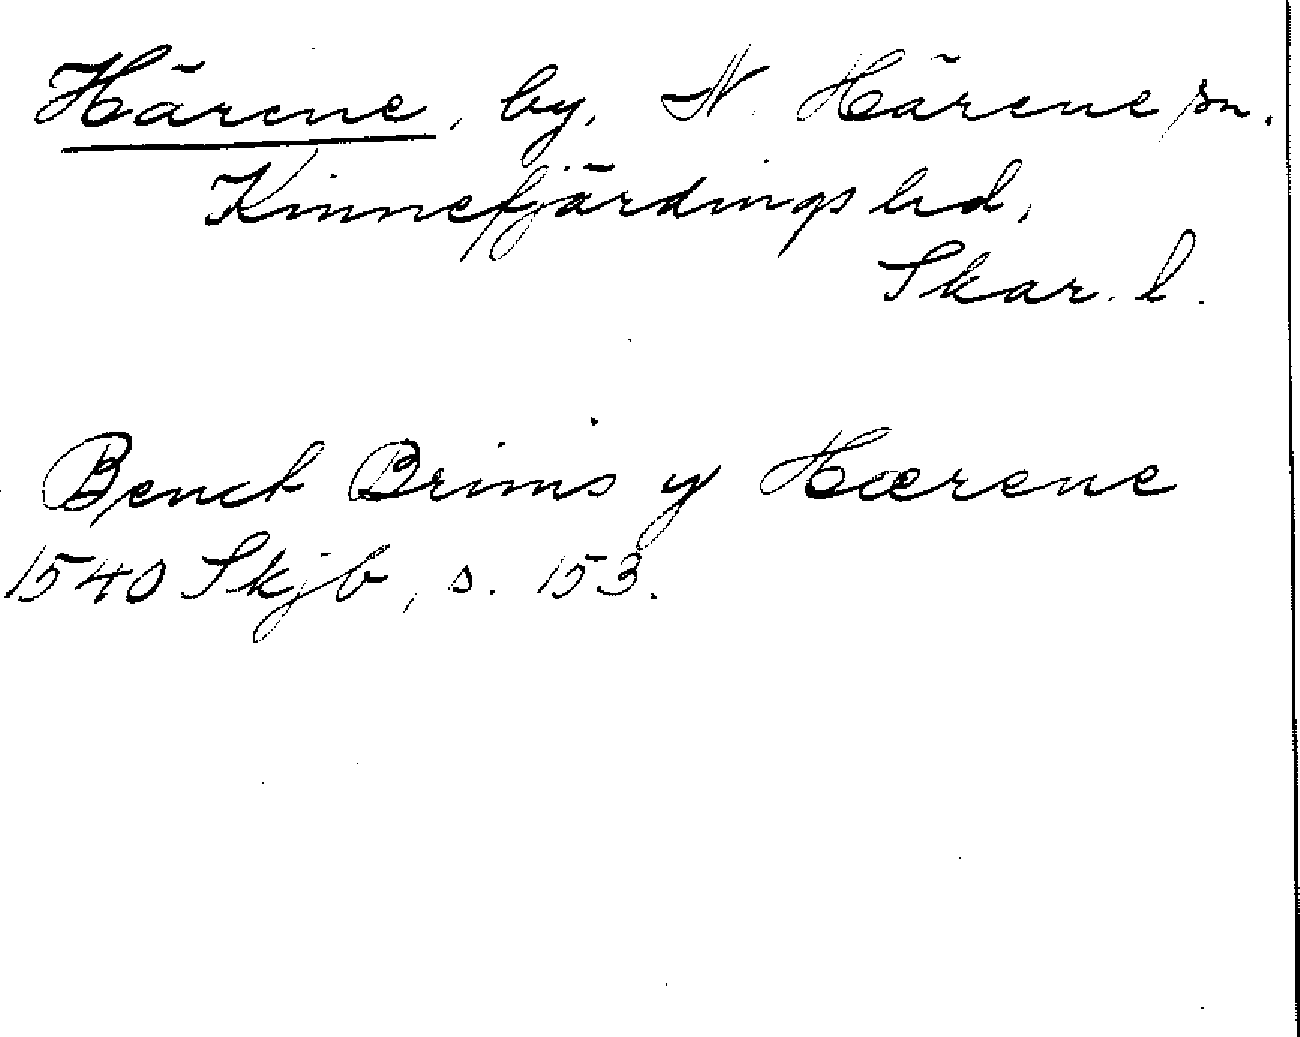 Härene, by, N. Härene sn.
Kinnefjärdings hd,
Skar. l.
Benct Brims y Hærene
1540 Skjb, s. 153.